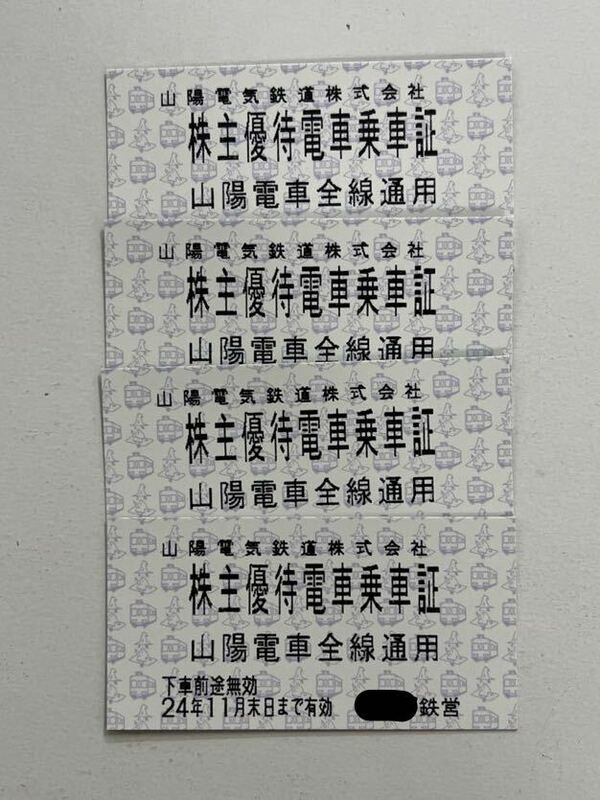 山陽電気鉄道株式会社
株主優待電車乗車証
山陽電車全線通用
山陽電気鉄道株式会社
株主優待電車乗車証
山陽電車全線通用
山陽電気鉄道株式会社
株主優待電車乗車証
山陽電車全線通用
山陽電気鉄道株式会社
株主優待電車乗車証
山陽電車全線通用
下車前途無効
24年11月末日まで有効 鉄営